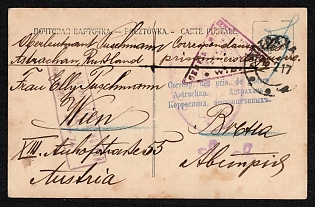 ПОЧТОВАЯ КАРТОЧКА. — POCZTÓWKA. — CARTE POSTALE.
Oberleutnant Puschmann Correspondance
Astrachan, Rußland prisonniers de guerre.
Frau Elly Puschmann
Corresp. des pris. de
Astrachan. Астрахань
Корреспонд. военноплѣнныхъ.
Wien Вѣна
XIII. Auhofstrasse 55
Austria Австрія